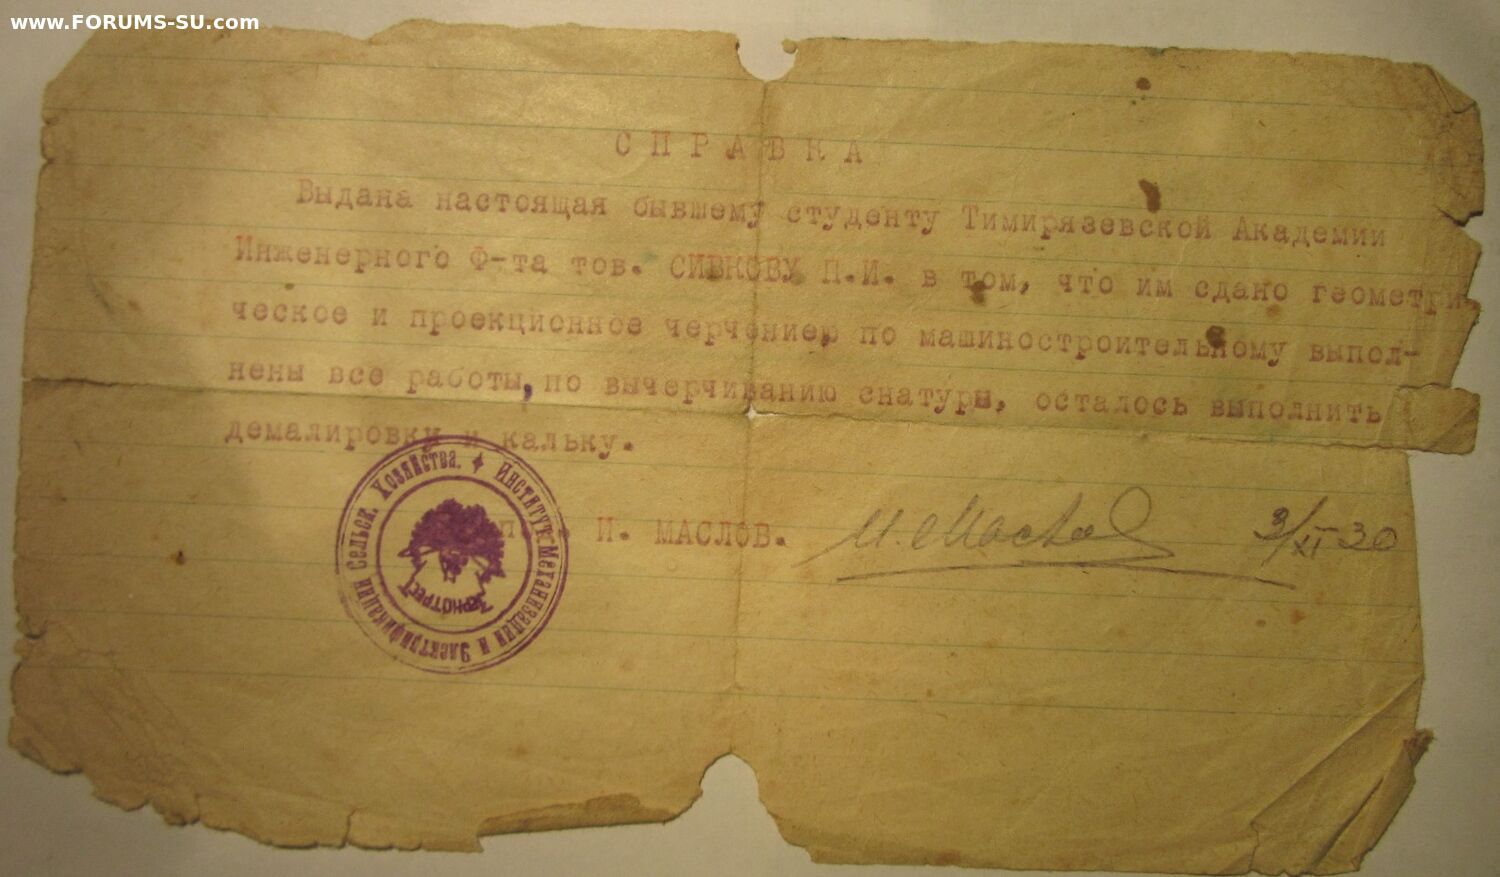 www.FORUMS-SU.com
СПРАВКА
Выдана настоящая бывшему студенту Тимирязевской Академии
Инженерного Ф-та тов. СИВКОВУ П.И. в том, что им сдано геометри-
ческое и проекционное черчение, по машиностроительному выпол-
нены все работы, по вычерчиванию снатуры, осталось выполнить
демалировку и кальку.
И. МАСЛОВ.
И. Маслов 3/XI 30
Институт Механизации и Электрификации Сельск. Хозяйства.
ЗЕРНОТРЕСТ